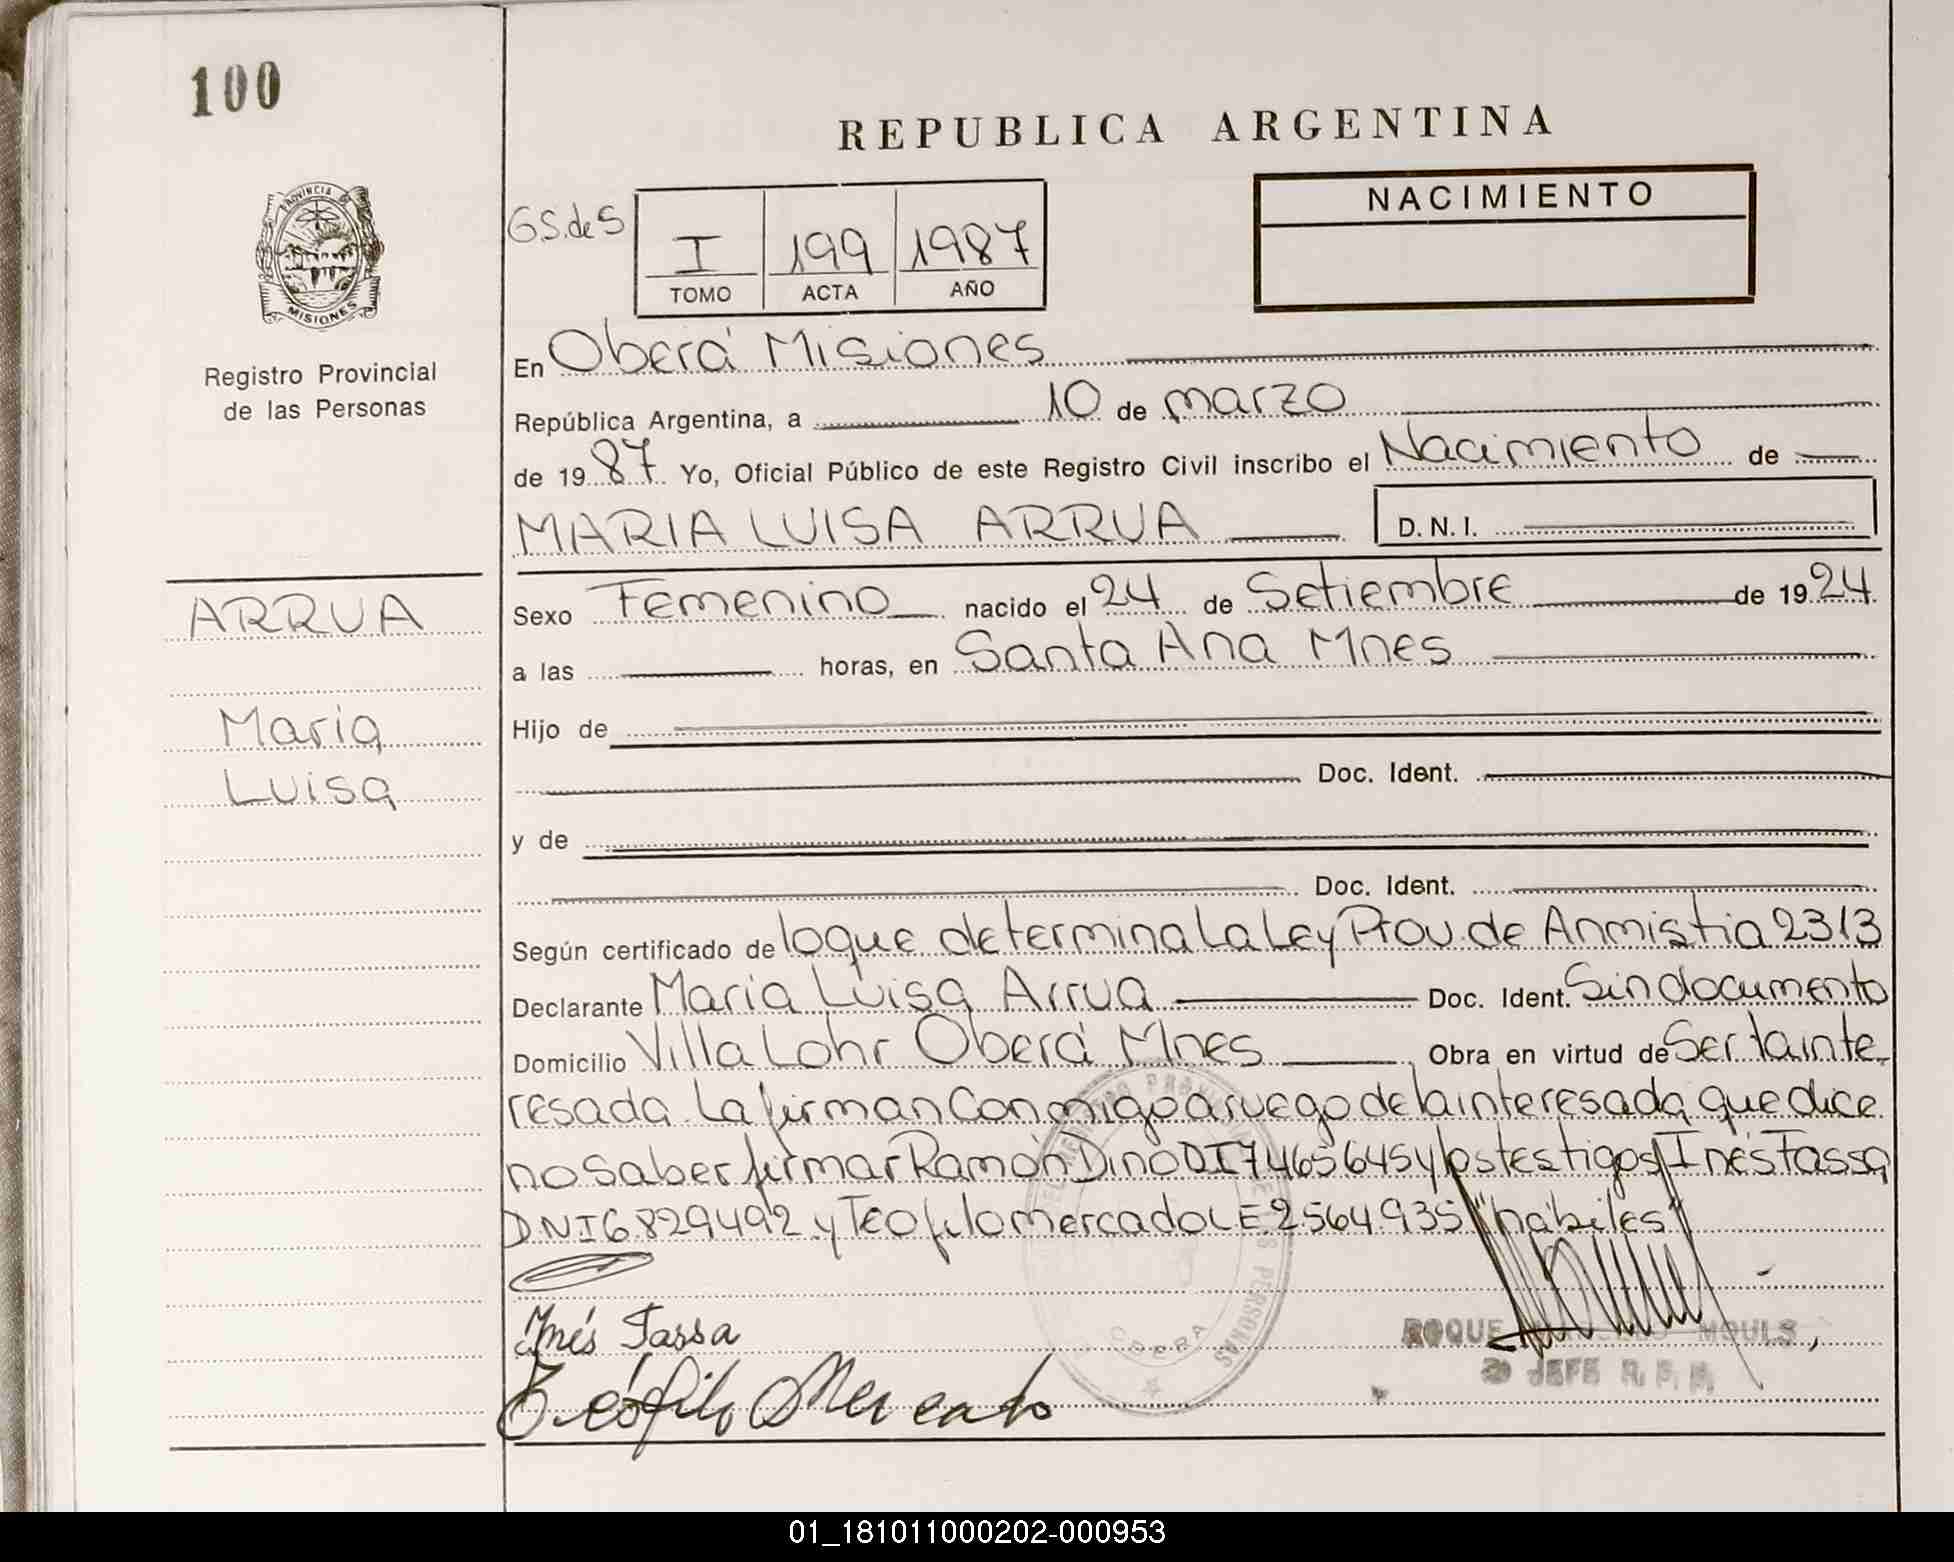 100
REPUBLICA ARGENTINA
PROVINCIA
MISIONES
Registro Provincial
de las Personas
NACIMIENTO
GS.deS
I 199 1987
TOMO ACTA AÑO
En Oberá Misiones
República Argentina, a 10 de marzo
de 1987. Yo, Oficial Público de este Registro Civil inscribo el Nacimiento de
MARIA LUISA ARRUA D.N.I.
ARRUA
Maria
Luisa
Sexo Femenino nacido el 24 de Setiembre de 1924.
a las horas, en Santa Ana Mnes
Hijo de
Doc. Ident.
y de
Doc. Ident.
Según certificado de loque determina La Ley Prov. de Anmistia 2313
Declarante Maria Luisa Arrua Doc. Ident. Sin documento
Domicilio Villa Lohr Oberá Mnes Obra en virtud de Ser la inte
resada. La firman Conmigo a ruego de la interesada que dice
no Saber firmar Ramón Dino DI 7465645 y los testigos Inés Fassa
DNI 6.829492 y Teofilo mercado LE 2564.935 "habiles"
Inés Fassa
Teófilo Mercado
OBERA
ROQUE MOULS
JEFE R. P. P.
01_181011000202-000953